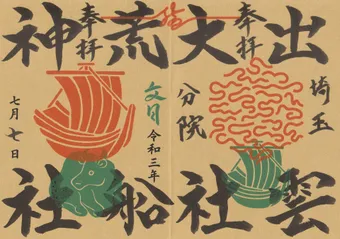 出雲
埼玉
奉拝
大社
分院
荒船
令和三年
文月
奉拝
神社
七月七日